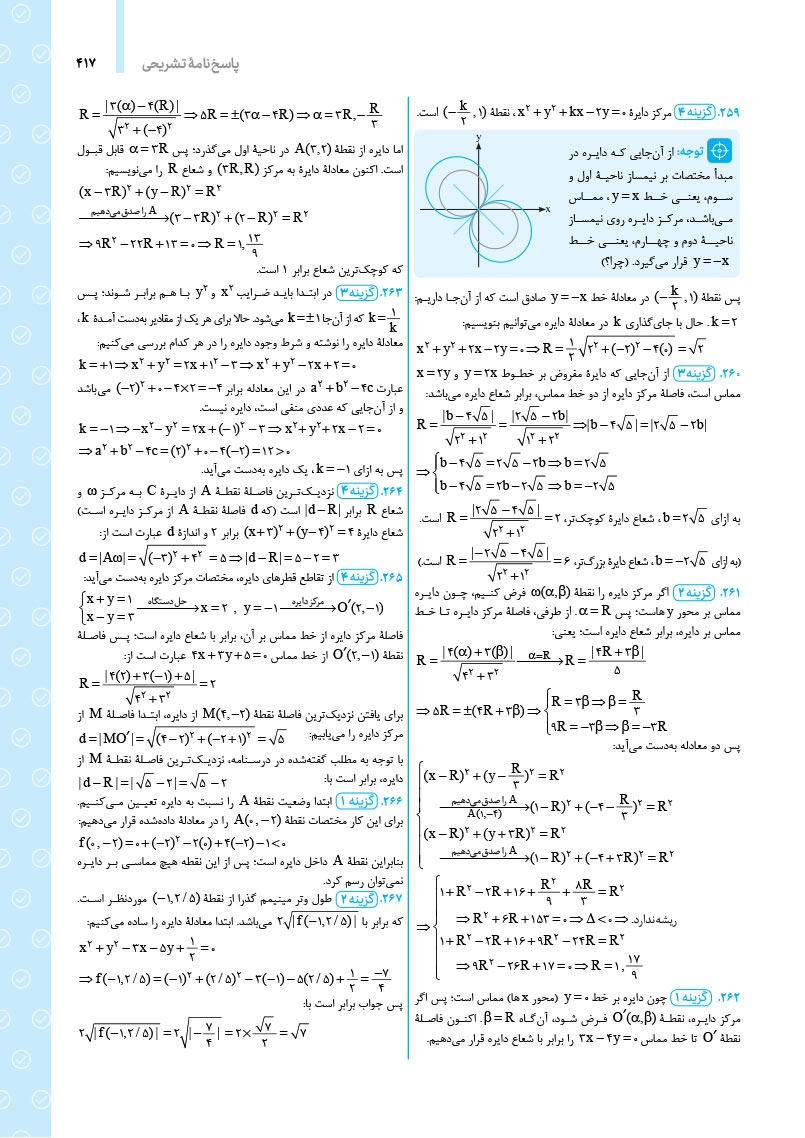 ۴۱۷ پاسخ‌نامهٔ تشریحی
۲۵۹. گزینه ۴ مرکز دایرهٔ x² + y² + kx − ۲y = ۰، نقطهٔ (−k/۲, ۱) است.
توجه: از آن‌جایی که دایره در
مبدأ مختصات بر نیمساز ناحیهٔ اول و
سوم، یعنی خط y = x، مماس
می‌باشد، مرکز دایره روی نیمساز
ناحیهٔ دوم و چهارم، یعنی خط
y = −x قرار می‌گیرد. (چرا؟)
y
x
پس نقطهٔ (−k/۲, ۱) در معادلهٔ خط y = −x صادق است که از آن‌جا داریم:
k = ۲. حال با جای‌گذاری k در معادلهٔ دایره می‌توانیم بنویسیم:
x² + y² + ۲x − ۲y = ۰ ⇒ R = ۱/۲ √(۲² + (−۲)² − ۴(۰)) = √۲
۲۶۰. گزینه ۳ از آن‌جایی که دایرهٔ مفروض بر خطوط y = ۲x و x = ۲y
مماس است، فاصلهٔ مرکز دایره از دو خط مماس، برابر شعاع دایره می‌باشد:
R = |b − ۴√۵| / √(۲² + ۱²) = |۲√۵ − ۲b| / √(۱² + ۲²) ⇒ |b − ۴√۵| = |۲√۵ − ۲b|
⇒ { b − ۴√۵ = ۲√۵ − ۲b ⇒ b = ۲√۵
b − ۴√۵ = ۲b − ۲√۵ ⇒ b = −۲√۵
به ازای b = ۲√۵، شعاع دایرهٔ کوچک‌تر، R = |۲√۵ − ۴√۵| / √(۲² + ۱²) = ۲ است.
(به ازای b = −۲√۵، شعاع دایرهٔ بزرگ‌تر، R = |−۲√۵ − ۴√۵| / √(۲² + ۱²) = ۶ است.)
۲۶۱. گزینه ۲ اگر مرکز دایره را نقطهٔ ω(α,β) فرض کنیم، چون دایره
مماس بر محور y هاست؛ پس α = R. از طرفی، فاصلهٔ مرکز دایره تا خط
مماس بر دایره، برابر شعاع دایره است؛ یعنی:
R = |۴(α) + ۳(β)| / √(۴² + ۳²) —α=R→ R = |۴R + ۳β| / ۵
⇒ ۵R = ±(۴R + ۳β) ⇒ { R = ۳β ⇒ β = R/۳
۹R = −۳β ⇒ β = −۳R
پس دو معادله به‌دست می‌آید:
{ (x − R)² + (y − R/۳)² = R²
—A را صدق می‌دهیم A(۱,−۴)→ (۱ − R)² + (−۴ − R/۳)² = R²
(x − R)² + (y + ۳R)² = R²
—A را صدق می‌دهیم→ (۱ − R)² + (−۴ + ۳R)² = R²
⇒ { ۱ + R² − ۲R + ۱۶ + R²/۹ + ۸R/۳ = R²
⇒ R² + ۶R + ۱۵۳ = ۰ ⇒ Δ < ۰ ⇒ ریشه ندارد.
۱ + R² − ۲R + ۱۶ + ۹R² − ۲۴R = R²
⇒ ۹R² − ۲۶R + ۱۷ = ۰ ⇒ R = ۱, ۱۷/۹
۲۶۲. گزینه ۱ چون دایره بر خط y = ۰ (محور x ها) مماس است؛ پس اگر
مرکز دایره، نقطهٔ O′(α,β) فرض شود، آن‌گاه β = R. اکنون فاصلهٔ
نقطهٔ O′ تا خط مماس ۳x − ۴y = ۰ را برابر با شعاع دایره قرار می‌دهیم.
R = |۳(α) − ۴(R)| / √(۳² + (−۴)²) ⇒ ۵R = ±(۳α − ۴R) ⇒ α = ۳R, −R/۳
اما دایره از نقطهٔ A(۳,۲) در ناحیهٔ اول می‌گذرد؛ پس α = ۳R قابل قبول
است. اکنون معادلهٔ دایرهٔ به مرکز (۳R,R) و شعاع R را می‌نویسیم:
(x − ۳R)² + (y − R)² = R²
—A را صدق می‌دهیم→ (۳ − ۳R)² + (۲ − R)² = R²
⇒ ۹R² − ۲۲R + ۱۳ = ۰ ⇒ R = ۱, ۱۳/۹
که کوچک‌ترین شعاع برابر ۱ است.
۲۶۳. گزینه ۳ در ابتدا باید ضرایب x² و y² با هم برابر شوند؛ پس
k = ۱/k که از آن‌جا k = ±۱ می‌شود. حالا برای هر یک از مقادیر به‌دست آمدهٔ k،
معادلهٔ دایره را نوشته و شرط وجود دایره را در هر کدام بررسی می‌کنیم:
k = +۱ ⇒ x² + y² = ۲x + ۱² − ۳ ⇒ x² + y² − ۲x + ۲ = ۰
عبارت a² + b² − ۴c در این معادله برابر (−۲)² + ۰ − ۴×۲ = −۴ می‌باشد
و از آن‌جایی که عددی منفی است، دایره نیست.
k = −۱ ⇒ −x² − y² = ۲x + (−۱)² − ۳ ⇒ x² + y² + ۲x − ۲ = ۰
⇒ a² + b² − ۴c = (۲)² + ۰ − ۴(−۲) = ۱۲ > ۰
پس به ازای k = −۱، یک دایره به‌دست می‌آید.
۲۶۴. گزینه ۴ نزدیک‌ترین فاصلهٔ نقطهٔ A از دایرهٔ C به مرکز ω و
شعاع R برابر |d − R| است (که d فاصلهٔ نقطهٔ A از مرکز دایره است)
شعاع دایرهٔ (x+۳)² + (y−۴)² = ۴ برابر ۲ و اندازهٔ d عبارت است از:
d = |Aω| = √((−۳)² + ۴²) = ۵ ⇒ |d − R| = ۵ − ۲ = ۳
۲۶۵. گزینه ۴ از تقاطع قطرهای دایره، مختصات مرکز دایره به‌دست می‌آید:
{ x + y = ۱
x − y = ۳ —حل دستگاه→ x = ۲ , y = −۱ —مرکز دایره→ O′(۲,−۱)
فاصلهٔ مرکز دایره از خط مماس بر آن، برابر با شعاع دایره است؛ پس فاصلهٔ
نقطهٔ O′(۲,−۱) از خط مماس ۴x + ۳y + ۵ = ۰ عبارت است از:
R = |۴(۲) + ۳(−۱) + ۵| / √(۴² + ۳²) = ۲
برای یافتن نزدیک‌ترین فاصلهٔ نقطهٔ M(۴,−۲) از دایره، ابتدا فاصلهٔ M از
مرکز دایره را می‌یابیم: d = |MO′| = √((۴−۲)² + (−۲+۱)²) = √۵
با توجه به مطلب گفته‌شده در درسنامه، نزدیک‌ترین فاصلهٔ نقطهٔ M از
دایره، برابر است با: |d − R| = |√۵ − ۲| = √۵ − ۲
۲۶۶. گزینه ۱ ابتدا وضعیت نقطهٔ A را نسبت به دایره تعیین می‌کنیم.
برای این کار مختصات نقطهٔ A(۰,−۲) را در معادلهٔ داده‌شده قرار می‌دهیم:
f(۰,−۲) = ۰ + (−۲)² − ۲(۰) + ۴(−۲) − ۱ < ۰
بنابراین نقطهٔ A داخل دایره است؛ پس از این نقطه هیچ مماسی بر دایره
نمی‌توان رسم کرد.
۲۶۷. گزینه ۲ طول وتر مینیمم گذرا از نقطهٔ (−۱,۲/۵) موردنظر است.
که برابر با ۲√|f(−۱,۲/۵)| می‌باشد. ابتدا معادلهٔ دایره را ساده می‌کنیم:
x² + y² − ۳x − ۵y + ۱/۲ = ۰
⇒ f(−۱,۲/۵) = (−۱)² + (۲/۵)² − ۳(−۱) − ۵(۲/۵) + ۱/۲ = −۷/۴
پس جواب برابر است با:
۲√|f(−۱,۲/۵)| = ۲√|−۷/۴| = ۲ × √۷/۲ = √۷